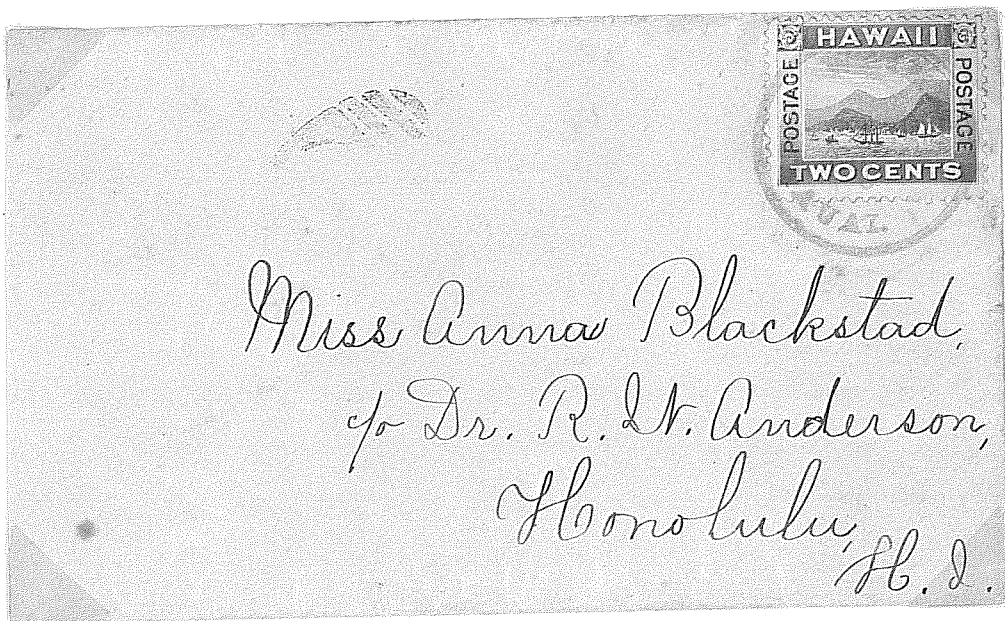 HAWAII
POSTAGE
POSTAGE
TWO CENTS
Miss Anna Blackstad,
c/o Dr. R. W. Anderson,
Honolulu,
H. I.